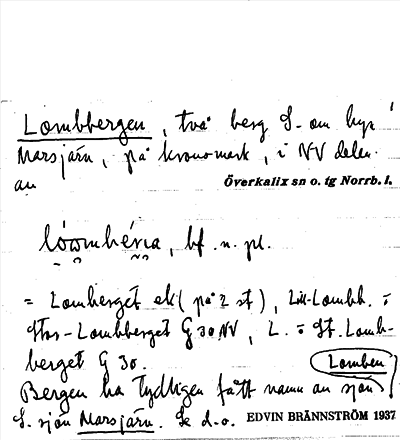 Lombbergen, två berg S. om byn
Marsjärn, på kronomark, i NV delen
av Överkalix sn o. tg Norrb. l.
bf. n. pl.
= Lomberget ek (på 2 st), Lill-Lombb. =
Stor-Lombberget G 30 NV, L. = St. Lomb-
berget G 30. Lomben
Bergen ha tydligen fått namn av sjön
S. sjön Marsjärn. Se d.o. EDVIN BRÄNNSTRÖM 1937